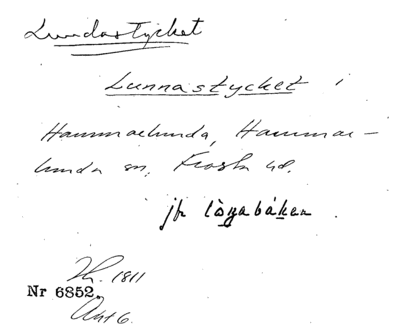 Lundastycket
Lunnastycket i
Hammarlunda, Hammar-
lunda sn, Frosta hd.
jfr
1811
Nr 6852.
Akt 6.